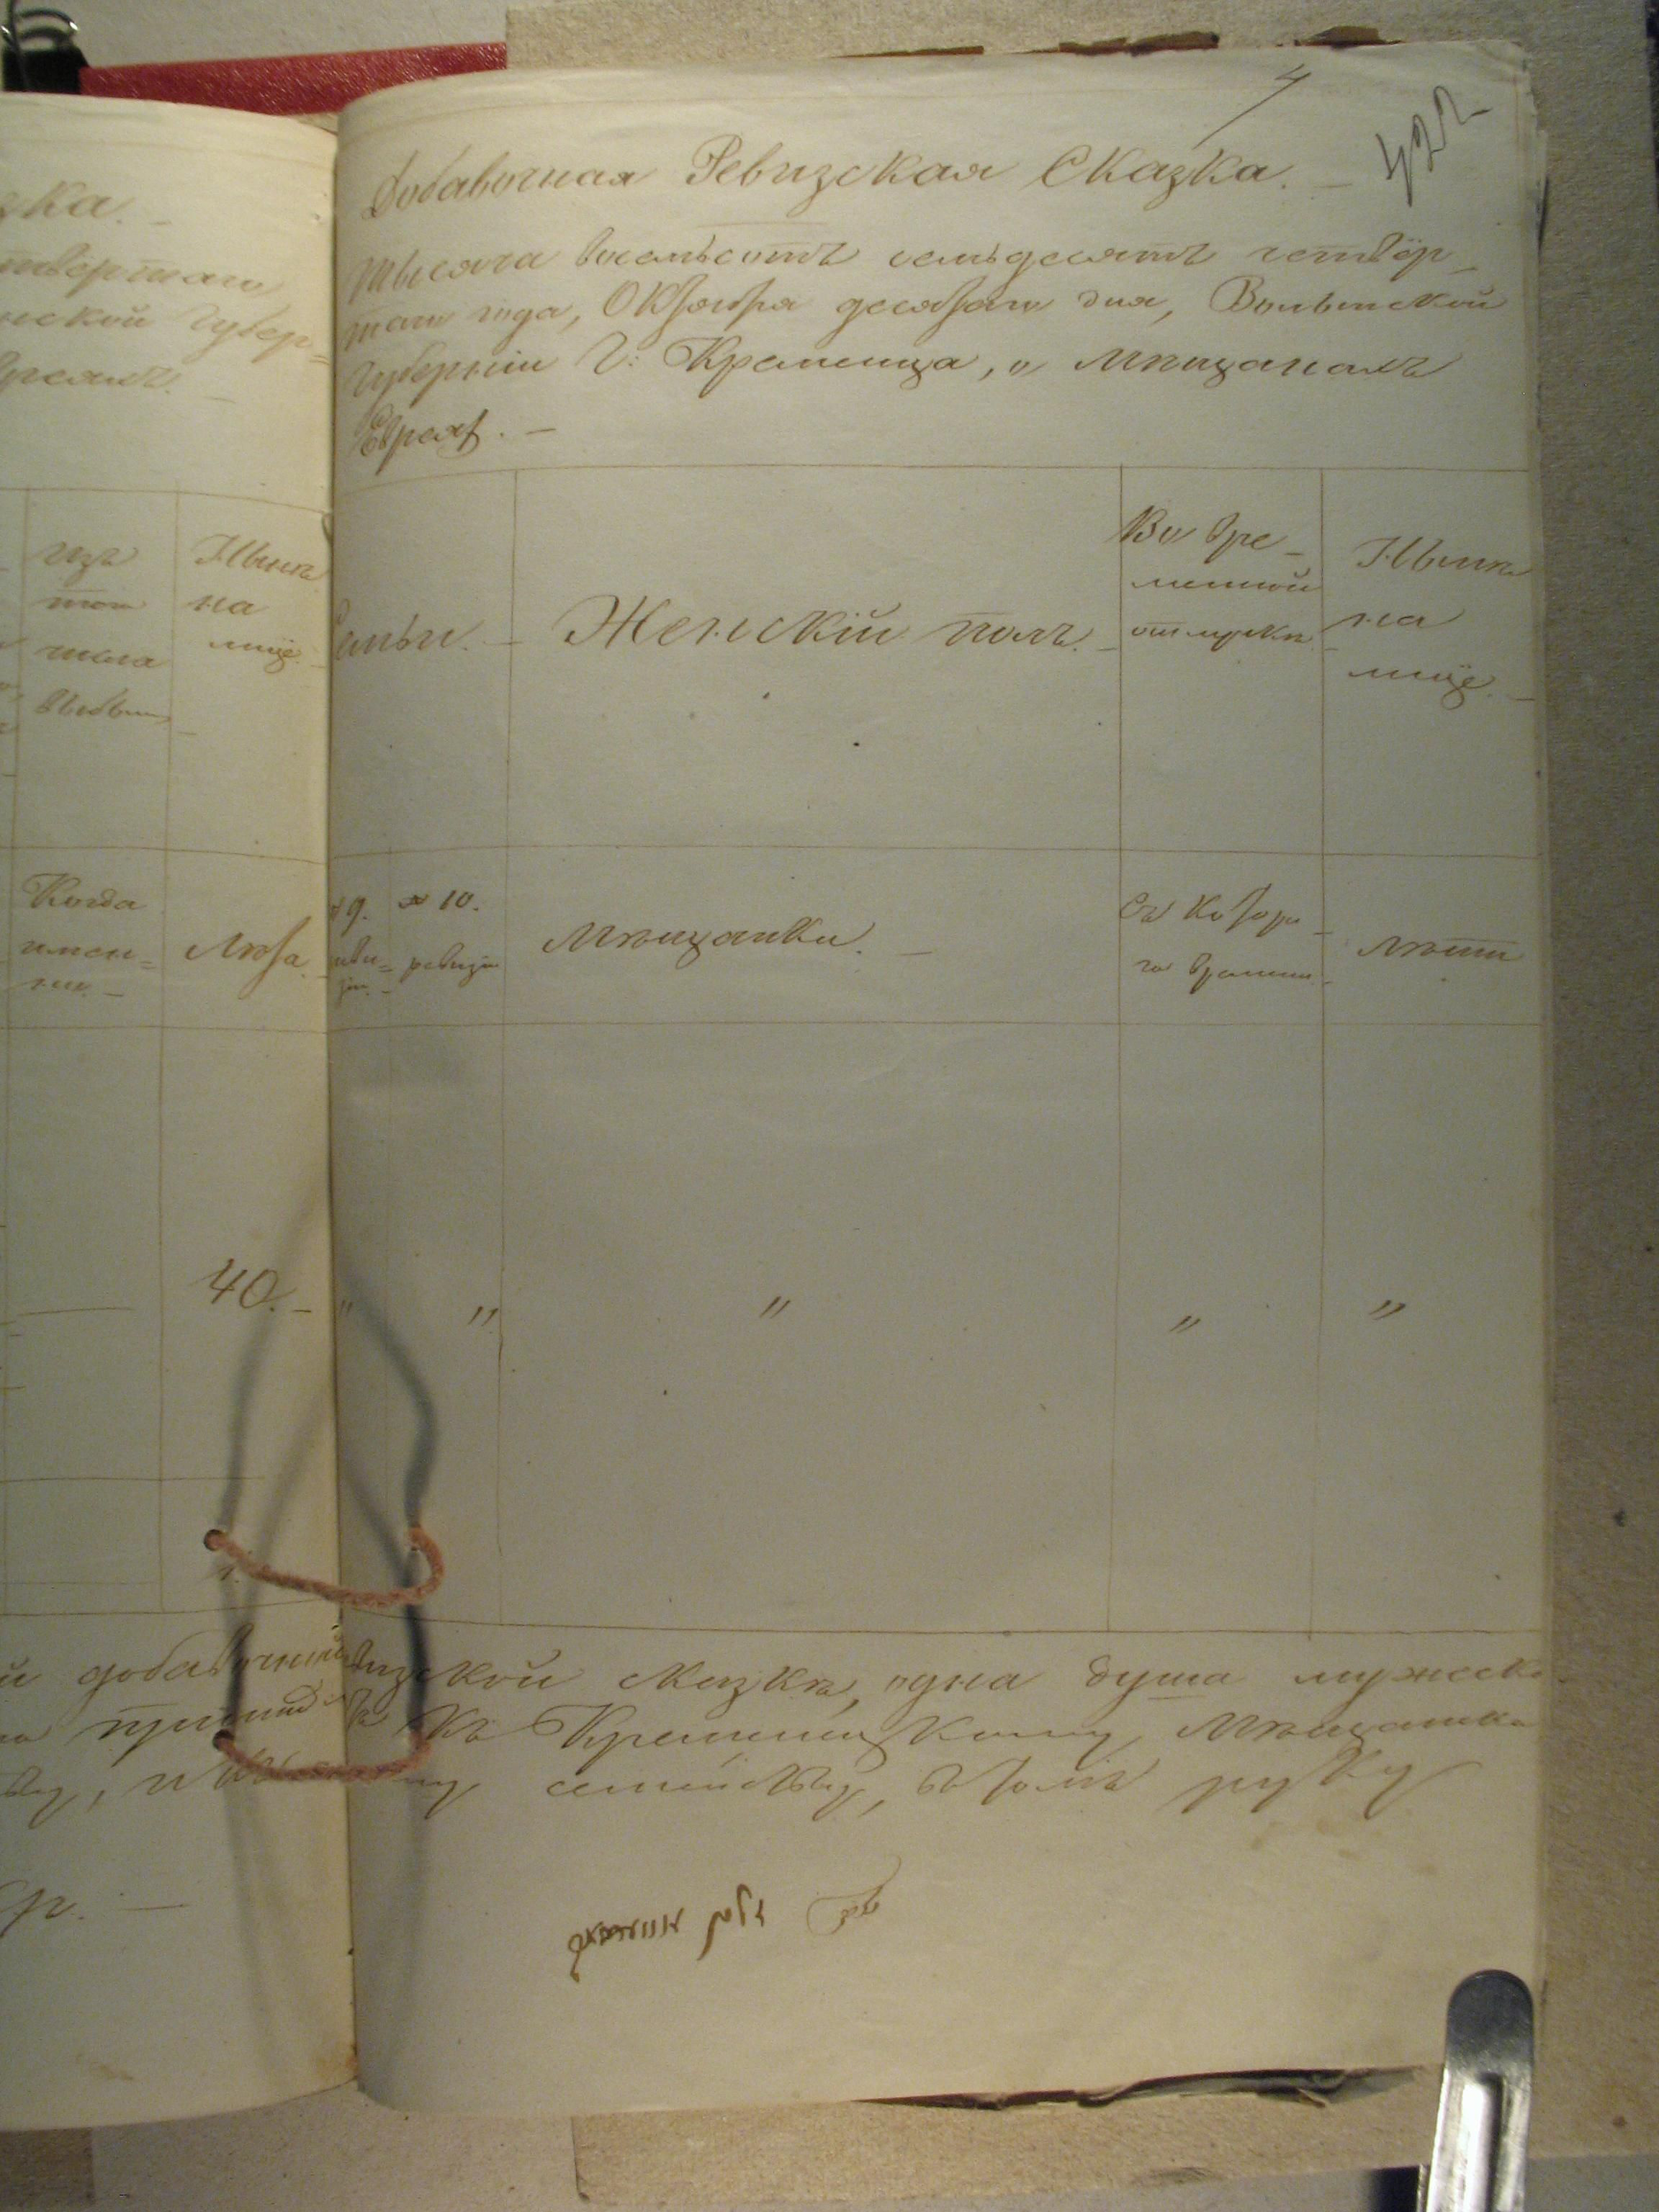 4
422
Добавочная Ревизская Сказка. —
Тысяча восемьсотъ семьдесятъ четвёр-
таго года, Октября десятаго дня, Волынской
Губерніи Г: Кременца, о Мѣщанахъ
Евреях. —
зка. —
твертаго
нской Губер=
Евреяхъ. —
изъ
того
числа
выбыли
Нынѣ
на
лице. —
Семьи. —
Женскій полъ. —
Во вре-
менной
отлучкѣ. —
Нынѣ
на
лице. —
Когда
имен=
но. —
Лѣта. —
№ 9.
реви=
зіи. —
№ 10.
ревизіи
Мѣщанки. —
Съ котора-
го времени. —
Лѣта
40. —
"
"
"
"
"
1.
й добавочной ревизской сказкѣ, одна душа мужеска
къ Кременецкому Мѣщанско
ву, семейству, въ томъ руку
Ср. —